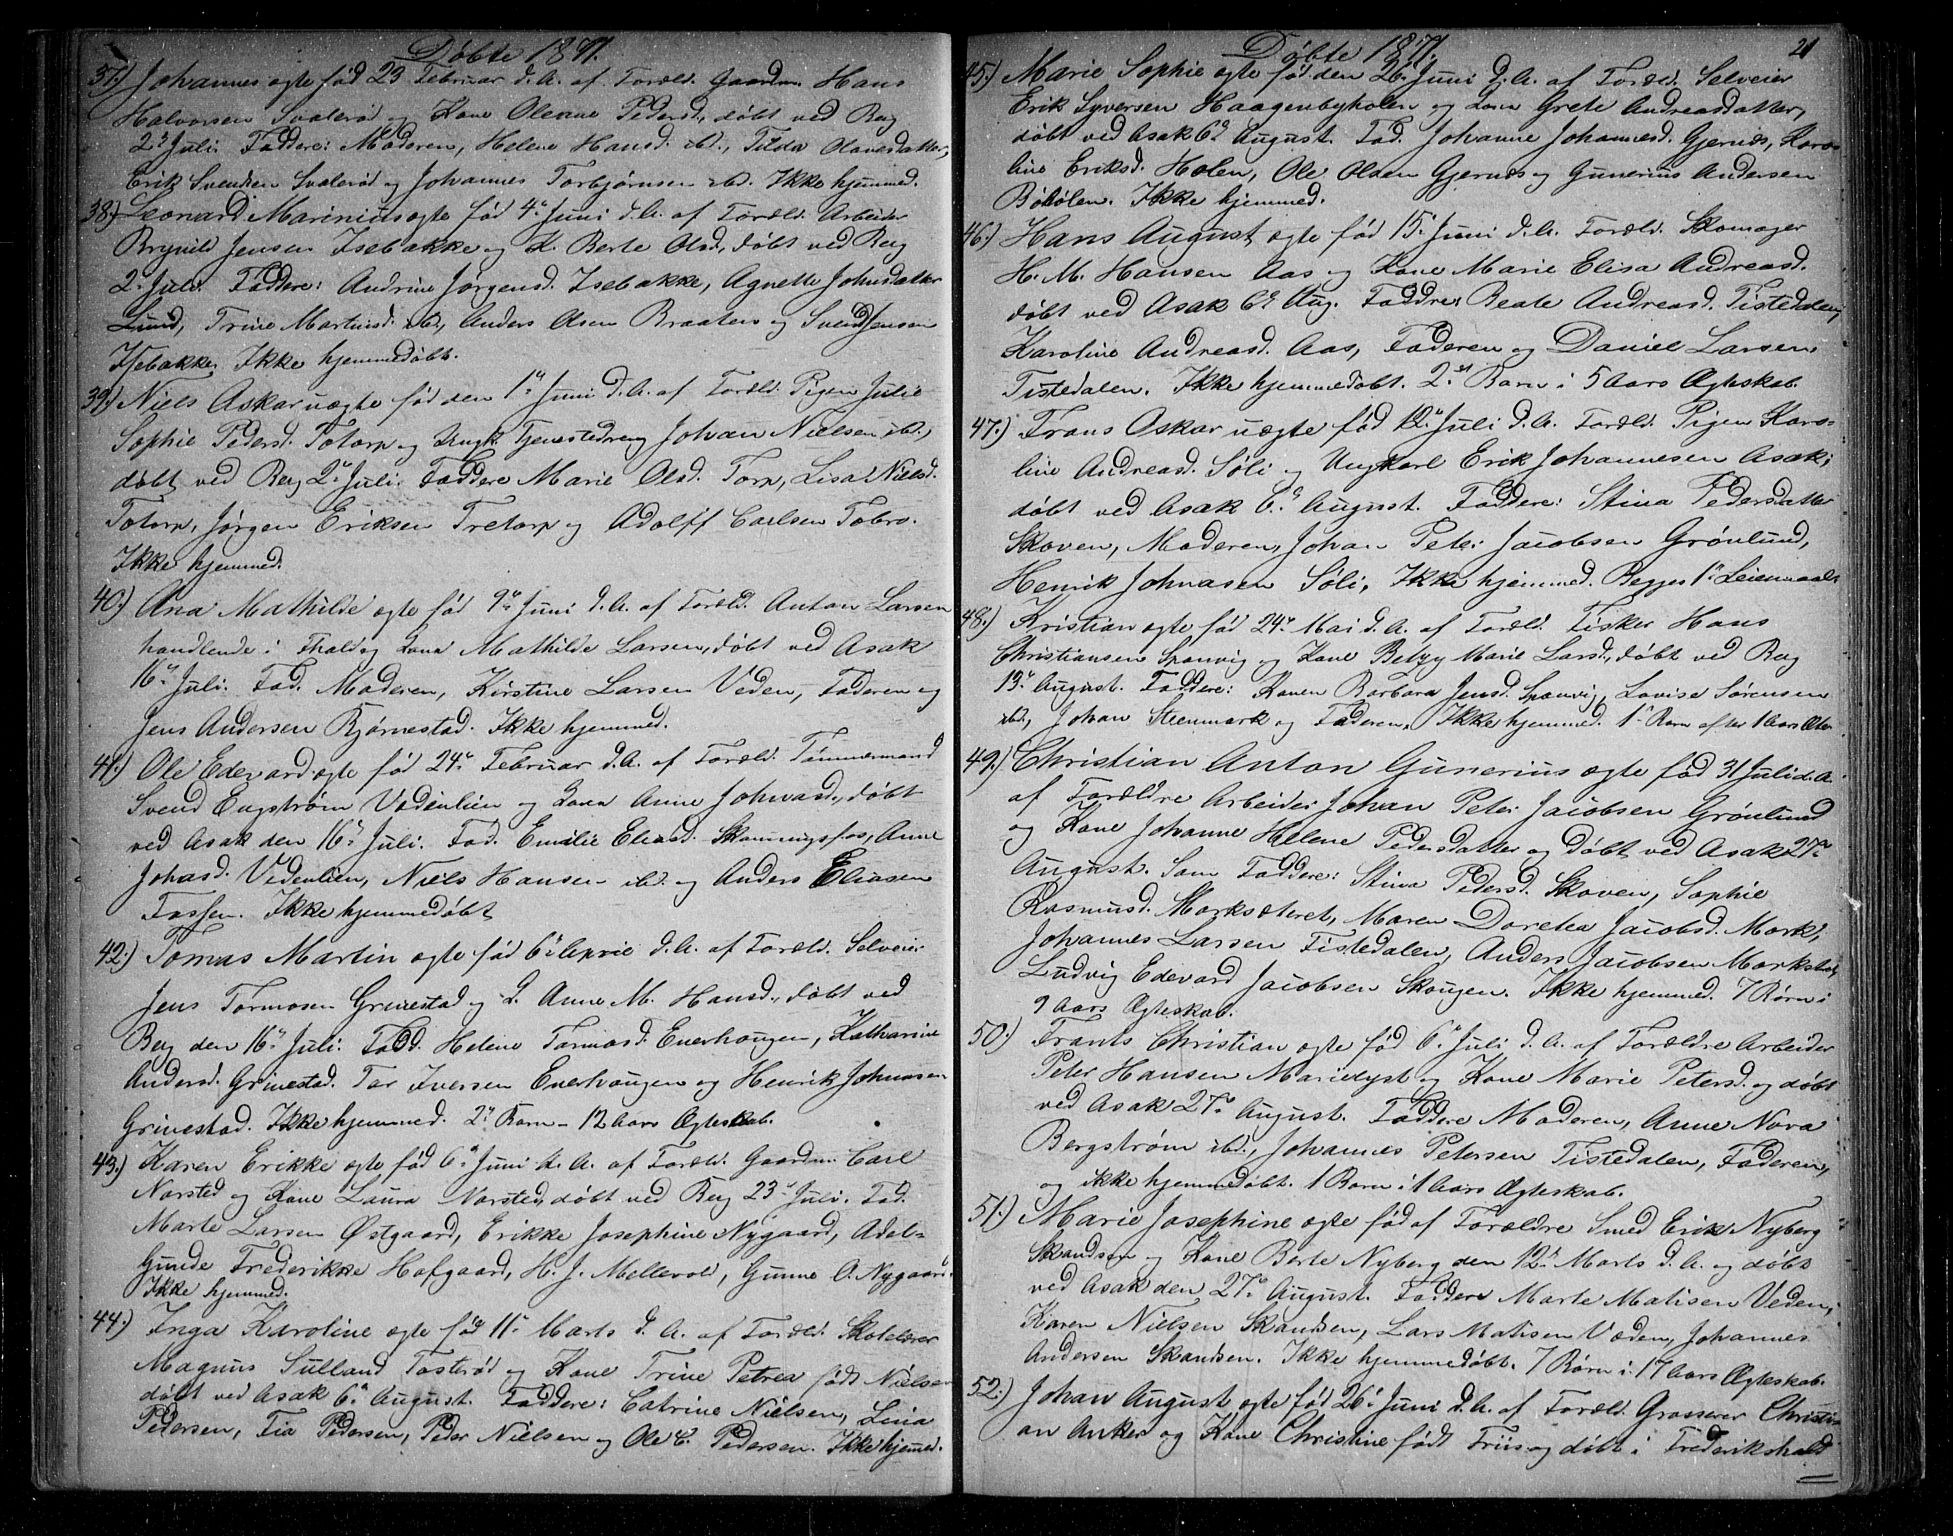 Døbte 1871.
37.) Johannes ægte fød 23 Februar d. A. af Foræld. Gaardm. Hans
Halvorsen Svalerød og Kone Olenne Pedersd., døbt ved Berg
2n Juli. Faddere: Moderen, Helene Hansd. ibd., Tilda Olavesdatter,
Erik Svendsen Svalerød og Johannes Torbjørnsen ibd. Ikke hjemmed.
38.) Leonard Marinius ægte fød 4n Juni d. A. af Foræld. Arbeider
Brynild Jensen Isebakke og K. Berte Olsd., døbt ved Berg
2. Juli. Faddere: Andrine Jørgensd. Isebakke, Agnette Johnsdatter
Lund, Trine Martinsd. ibd., Anders Olsen Braaten og Svend Jensen
Isebakke. Ikke hjemmedøbt.
39.) Niels Askar uægte fød den 1n Juni d. A. af Foræld. Pigen Julie
Sophie Pedersd. Totorp og Ungk. Tjenestedreng Johan Nielsen ibd.,
døbt ved Berg 2n Juli. Faddere Marie Olsd. Torp, Lisa Nielsd.
Totorp, Jørgen Eriksen Tretorp og Adolff Carlsen Tobro.
Ikke hjemmed.
40.) Ana Mathilde ægte fød 9n Juni d. A. af Foræld. Anton Larsen
handlende i Fhald og Kone Mathilde Larsen, døbt ved Asak
16n Juli. Fad. Moderen, Kirstine Larsen Veden, Faderen og
Jens Andersen Bjørnestad. Ikke hjemmed.
41.) Ole Edevard ægte fød 24n Februar d. A. af Foræld. Tømmermand
Svend Engstrøm Vedenlien og Kone Anne Johnasd., døbt
ved Asak den 16n Juli. Fad. Emilie Eliasd. Skonningsfos, Anne
Johasd. Vedenlien, Niels Hansen ibd. og Anders Eliasen
Fossen. Ikke hjemmedøbt
42.) Tomas Martin ægte fød 6n April d. A. af Foræld. Selveier
Jens Tormosen Grinestad og K. Anne M. Hansd., døbt ved
Berg den 16n Juli. Fadd. Helene Tormosd. Enerhougen, Katharine
Andersd. Grinestad. Tor Iversen Enerhougen og Henrik Johnasen
Grinestad. Ikke hjemmed. 2n Barn - 12 Aars Ægteskab.
43.) Karen Erikke ægte fød 6n Juni d. A. af Foræld. Gaardm. Carl
Norsted og Kone Laura Norsted, døbt ved Berg 23n Juli. Fad.
Marte Larsen Østgaard, Erikke Josephine Nygaard, Adel-
Gunde Frederikke Hofgaard, H. J. Mellevold, Gunne O. Nygaard.
Ikke hjemmed.
44.) Inga Karoline ægte fød 11n Marts d. A. af Foræld. Skolelærer
Magnus Sulland Tosterød og Kone Trine Petrea født Nielsen
døbt ved Asak 6n August. Faddere: Catrine Nielsen, Lina
Pedersen, Fia Pedersen, Peder Nielsen og Ole C. Pedersen. Ikke hjemmed.
21
Døbte 1871.
45.) Marie Sophie ægte fød den 26. Juni d. A. af Foræld. Selveier
Erik Syversen Haagenbyholen og Kone Grete Andreasdatter,
døbt ved Asak 6n August. Fad. Johanne Johannesd. Gjernes, Karo-
line Eriksd. Holen, Ole Olsen Gjernes og Gunerius Andersen
Bøhølen. Ikke hjemmed.
46.) Hans August ægte fød 15n Juni d. A. Foræld. Skomager
H. M. Hansen Aas og Kone Marie Elisa Andreasd.
døbt ved Asak 6n Aug. Faddre: Beate Andreasd. Tistedalen,
Karoline Andreasd. Aas, Faderen og Daniel Larsen
Tistedalen. Ikke hjemmedøbt. 2n Barn i 5 Aars Ægteskab.
47.) Frans Oskar uægte fød 12n Juli d. A. Foræld. Pigen Karo-
line Andreasd. Søli og Ungkarl Erik Johannesen Asak,
døbt ved Asak 6n August. Faddere: Stina Pedersdatter
Skoven, Moderen, Johan Peter Jacobsen Grønlund,
Henrik Johnasen Søli, Ikke hjemmed. Begges 1n Leiermaal.
48.) Kristian ægte fød 24n Mai d. A. af Foræld. Fisker Hans
Christiansen Sponvig og Kone Betzy Marie Larsd., døbt ved Berg
13n August. Faddere: Konen Barbara Jensd. Sponvig, Lovise Sørensen
ibd., Johan Steenmark og Faderen. Ikke hjemmed. 1n Barn efter 1 Aars Ægte.
49.) Christian Anton Gunerius ægte fød 31 Juli d. A.
af Forældre Arbeider Johan Peter Jacobsen Grønlund
og Kone Johanne Helene Pedersdatter og døbt ved Asak 27n
August. Som Faddere: Stina Pedersd. Skoven, Sophie
Rasmusd. Marksæteret, Maren Doretea Jacobsd. Mark,
Johannes Larsen Tistedalen, Anders Jacobsen
Ludvig Edevard Jacobsen Skougen. Ikke hjemmed. 7 Børn i
9 Aars Ægteskab.
50.) Frants Christian ægte fød 6n Juli d. A. af Forældre Arbeider
Peter Hansen Marielyst og Kone Marie Petersd. og døbt
ved Asak 27n August. Faddere Moderen, Anne Nora
Bergstrøm ibd., Johannes Petersen Tistedalen, Faderen,
og ikke hjemmedøbt. 1 Barn i 1 Aars Ægteskab.
51.) Marie Josephine ægte fød af Forældre Smed Erik Nyberg
Skandsen og Kone Berte Nyberg den 12n Marts d. A. og døbt
ved Asak den 27n August. Faddere Marte Matisen Veden,
Karen Nielsen Skandsen, Lars Matisen Veden, Johannes
Andersen Skandsen. Ikke hjemmedøbt. 7 Børn i 17 Aars Ægteskab.
52.) Johan August ægte fød 26n Juni d. A. af Foræld. Grosserer Christi-
an Anker og Kone Christine født Friis og døbt i Frederikshald